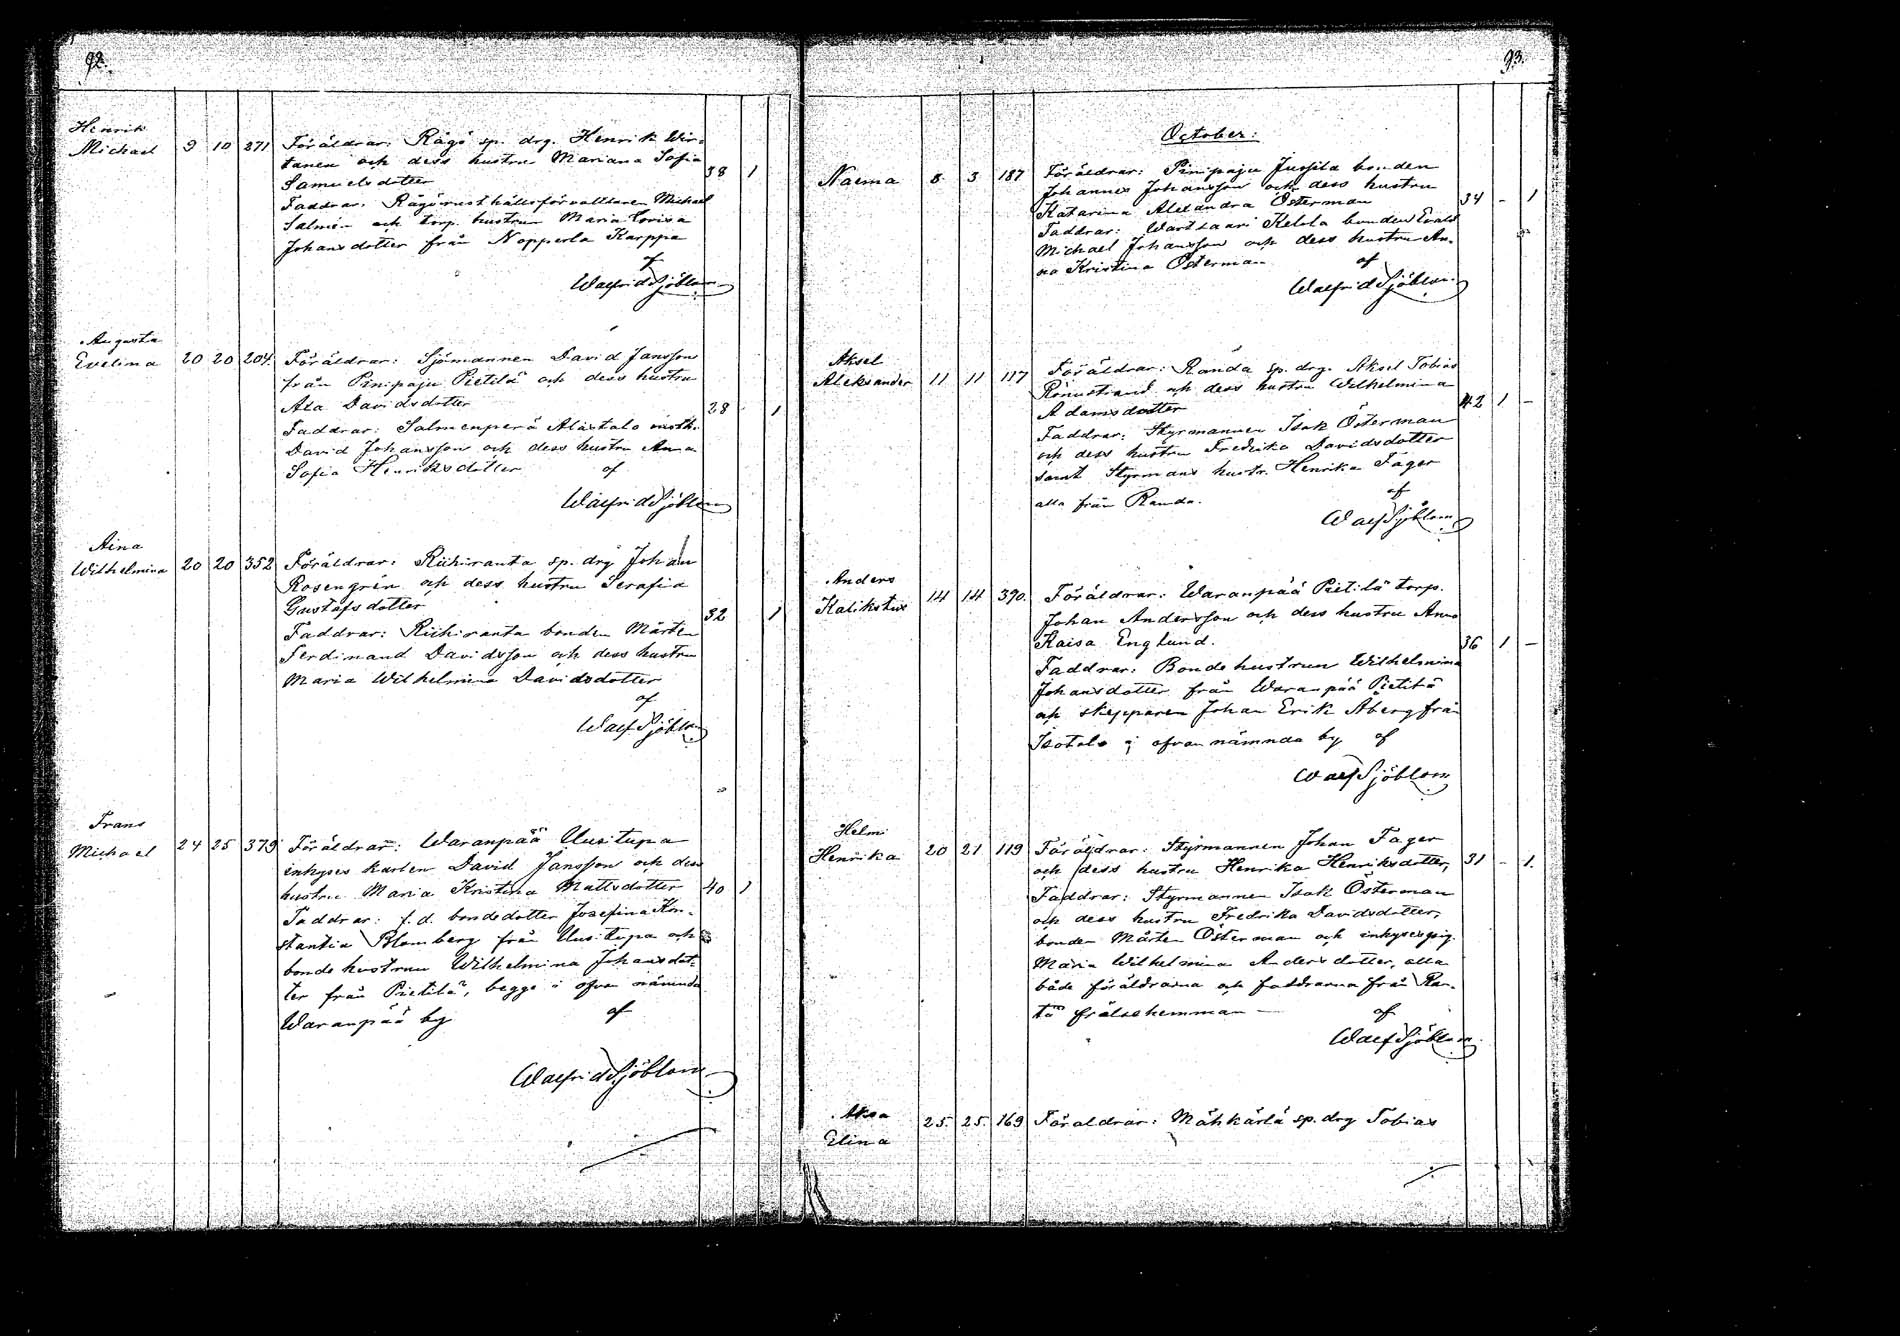 92.
Henrik
Michael 9 10 271 Föräldrar: Rägö sp. drg. Henrik Wir-
tanen och dess hustru Mariana Sofia
Samuelsdotter 38 1
Faddrar: Rägö rusthållsförvaltaren Michael
Salmén och torp. hustrun Maria Lovisa
Johansdotter från Nopperla Karppa
Walfrid Sjöblom
Augusta
Evelina 20 20 204. Föräldrar: Sjömannen David Jansson
från Pinipaju Pietilä och dess hustru
Ada Davidsdotter 28 1
Faddrar: Salmenperä Alastalo
David Johansson och dess hustru Anna
Sofia Henriksdotter af
Walfrid Sjöblom
Aina
Wilhelmina 20 20 352 Föräldrar: Riihiranta sp. drg Johan
Rosengrén och dess hustru Serafia
Gustafsdotter 32 1
Faddrar: Riihiranta bonden Mårten
Ferdinand Davidsson och dess hustru
Maria Wilhelmina Davidsdotter
af
Walf Sjöblom
Frans
Michael 24 25 379 Föräldrar: Waranpää Uusitupa
inhyses karlen David Jansson och dess
hustru Maria Kristina Mattsdotter 40 1
Faddrar: f.d. bondedotter Josefina Kon-
stantia Blomberg från Uusitupa och
bonde hustrun Wilhelmina Johansdot-
ter från Pietilä, begge i ofvan nämnda
Waranpää by af
Walfrid Sjöblom
93.
October:
Naema 3 187 Föräldrar: Pinipaju Jussila bonden
Johannes Johansson och dess hustru
Katarina Alexandra Österman 34 - 1
Faddrar: Wartsaari Kelola bonden Evald
Michael Johansson och dess hustru An-
na Kristina Österman af
Walfrid Sjöblom
Aksel
Aleksander 11 11 117 Föräldrar: Randa sp. drg. Aksel Tobias
Rönnstrand och dess hustru Wilhelmina
Adamsdotter 42 1 -
Faddrar: Styrmannen Isak Österman
och dess hustru Fredrika Davidsdotter
samt Styrmans hustr. Henrika Fager
alla från Randa. af
Walf Sjöblom
Anders
Kalikstus 14 14 390. Föräldrar: Waranpää Pietilä torp.
Johan Andersson och dess hustru Anna
Kaisa Englund. 36 1 -
Faddrar: Bondehustrun Wilhelmina
Johansdotter från Waranpää Pietilä
och skepparen Johan Erik Åberg från
Isotalo i ofvannämnda by af
Walf Sjöblom
Helmi
Henrika 20 21 119 Föräldrar: Styrmannen Johan Fager
och dess hustru Henrika Henriksdotter, 31 - 1.
Faddrar: Styrmannen Isak Österman
och dess hustru Fredrika Davidsdotter,
bonden Mårten Österman och inhyses pig.
Maria Wilhelmina Andersdotter, alla
både föräldrarna och faddrarna från Ran-
ta frälsehemman - af
Walf Sjöblom
Aksa
Elina 25. 25. 169 Föräldrar: Mähkärlä sp. drg Tobias